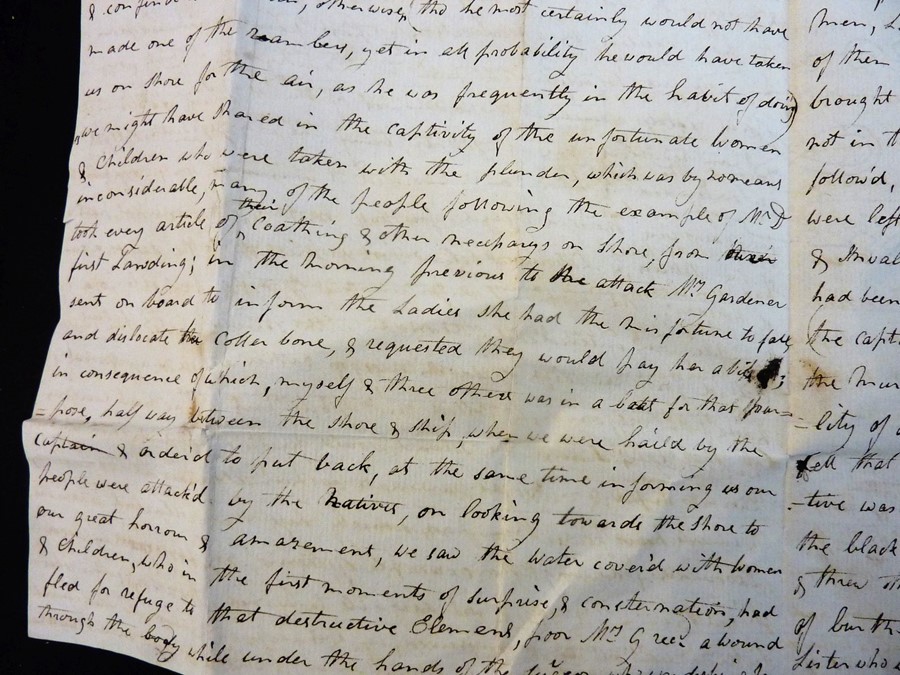 otherwise, tho he most certainly would not have
made one of the number, yet in all probability he would have taken
us on shore for the air, as he was frequently in the habit of doing
we might have shared in the captivity of the unfortunate women
& Children who were taken with the plunder, which was by no means
inconsiderable, many of the people following the example of Mr D
took every article of their Cloathing & other necessarys on Shore, from their
first Landing; in the morning previous to the attack Mrs Gardener
sent on board to inform the Ladies she had the misfortune to fall
and dislocate the Coller bone, & requested they would pay her a visit;
in consequence of which, myself & three others was in a boat for that pur=
=pose, half way between the shore & ship, when we were hail'd by the
Captain & order'd to put back, at the same time informing us our
people were attack'd by the Natives, on looking towards the Shore to
our great horrour & amazement, we saw the water cover'd with Women
& Children, who in the first moments of surprise, & consternation, had
fled for refuge to that destructive Element, poor Mrs Green a wound
through the body while under the hands of the
men,
of them
brought
not in
follow'd,
were left
&
had been
the capt
the
=lity of
fell that
=tive was
the black
& threw
of
Sister who